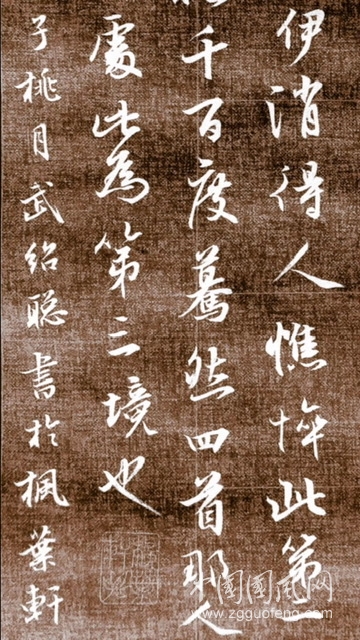 伊消得人憔悴此第
千百度驀然回首那人
處此為第三境也
子桃月武紹聰書於楓葉軒
国国风网
www.zgguofeng.com